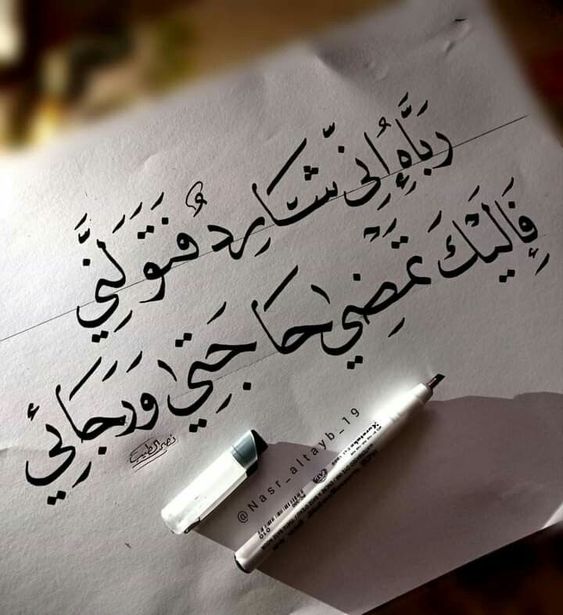 رَبَّاهُ إِنِّي شَارِدٌ فَتَوَلَّنِي
فَإِلَيْكَ تَمْضِي حَاجَتِي وَرَجَائِي
نصر الطيب
@Nasr_altayb_19